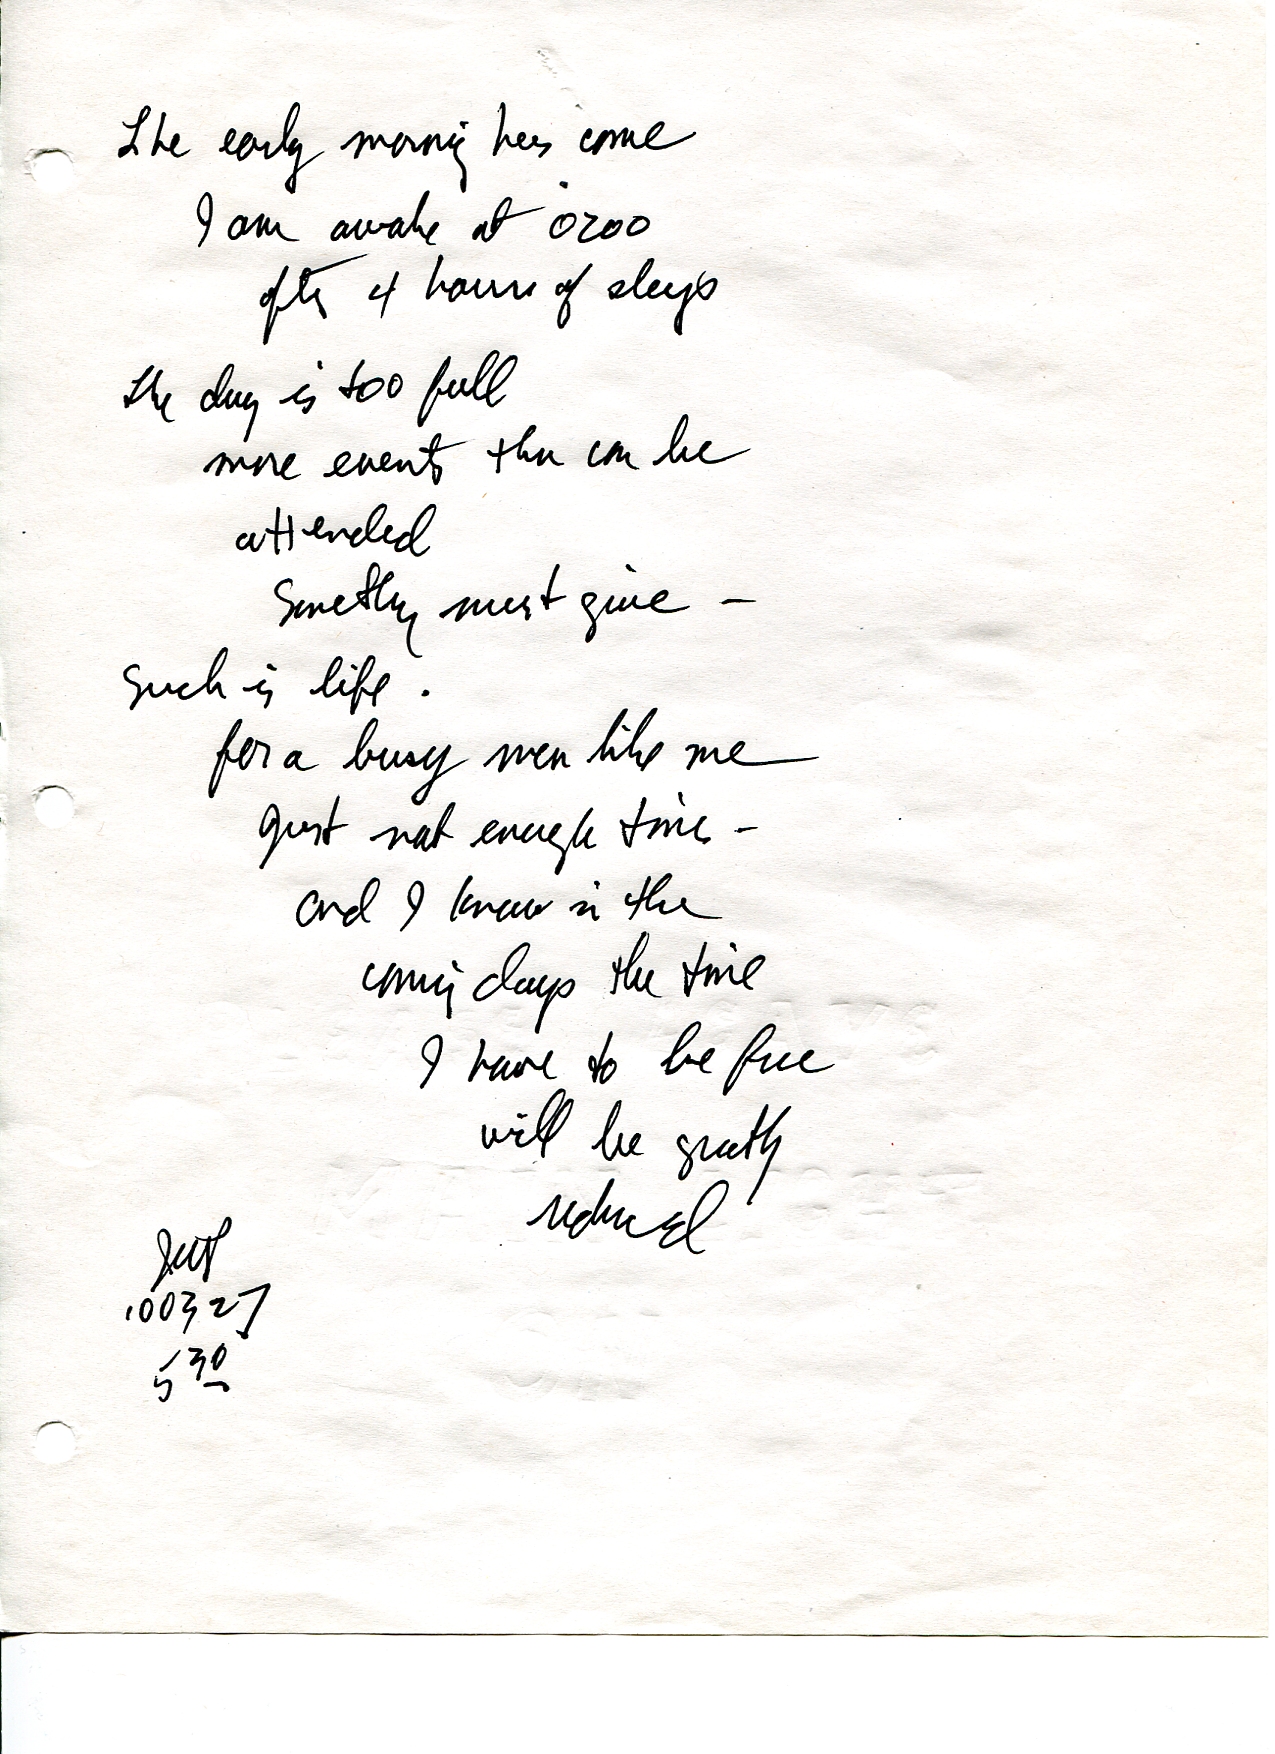 The early morning has come
I am awake at 0200
after 4 hours of sleep
the day is too full
more events than can be
attended
Something must give –
Such is life.
for a busy man like me
Just not enough time –
and I know in the
coming days the time
I have to be free
will be greatly
reduced
100327
530